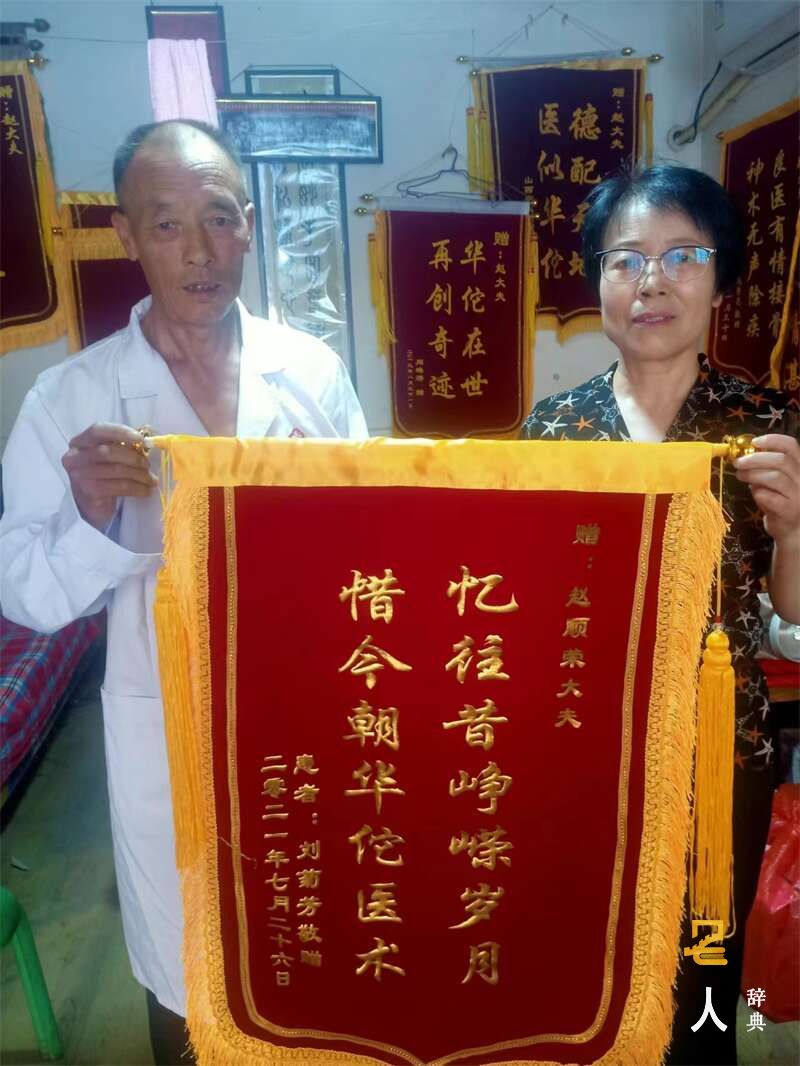 赠：赵顺荣大夫
忆往昔峥嵘岁月
惜今朝华佗医术
患者：刘菊芳敬赠
二零二一年七月二十六日
赠：赵大夫
赠：赵大夫
华佗在世
再创奇迹
赠：赵大夫
德配天地
医似华佗
山西
良医有情接骨
神术无声除疾
人
辞典